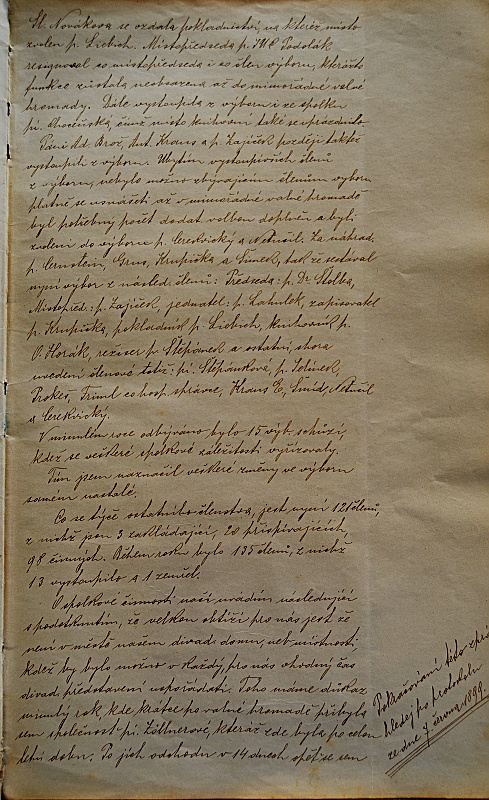 Sl. Nováková se vzdala pokladnictví, na kteréž místo
zvolen p. Liebich. Místopředseda p. Podolák
resignoval co místopředseda i co člen výboru, kterážto
funkce zůstala neobsazena až do mimořádné valné
hromady. Dále vystoupila z výboru i ze spolku
čímž místo knihovní také se uprázdnilo.
Páni Ad. Brož, Ant. Kraus a p. Zajíček později taktéž
vystoupili z výboru. Ubytím vystoupivších členů
z výboru, nebylo možno zbývajícím členům výboru
platně se usnášeti až v mimořádné valné hromadě
byl potřebný počet dodat volbou doplněn a byli
zvoleni do výboru p. Cerekvický a Netušil. Za náhrad.
p. Ornstein, Grus, Krupička a Šimek, tak že sestával
nyní výbor z násled. členů: Předseda: p. Dr. Stolba,
Místopřed.: p. Zajíček, jednatel: p. Lahulek, zapisovatel
p. Krupička, pokladník p. Liebich, knihovník p.
O. Horák, režiser p. Štěpánek a ostatní, shora
uvedení členové totiž: pí. Štěpánková, p. Jelínek,
Prokeš, Triml co hosp. správce, Kraus E, Šmíd, Netušil
a Cerekvický.
V minulém roce odbýváno bylo 15 výb. schůzí,
kdež se veškeré spolkové záležitosti vyřizovaly.
Tím jsem naznačil veškeré změny ve výboru
samém nastalé.
Co se týče ostatního členstva, jest nyní 121 členů,
z nichž jsou 3 zakládající, 20 přispívajících,
98 činných. Během roku bylo 135 členů, z nichž
13 vystoupilo a 1 zemřel.
O spolkové činnosti naší uvádím následující
s podotknutím, že velkou obtíží pro nás jest že
není v městě našem divad. domu, neb místnosti,
kdež by bylo možno v každý, pro nás vhodný čas
divad. představení uspořádati. Toho máme důkaz
minulý rok, kde krátce po valné hromadě přibyla
sem společnost pí. Zöllnerové, kteráž zde byla po celou
letní dobu. Po jich odchodu v 14 dnech opět se sem
Pokračování této zprávy
hledej po protokolu
ze dne 7. června 1899.